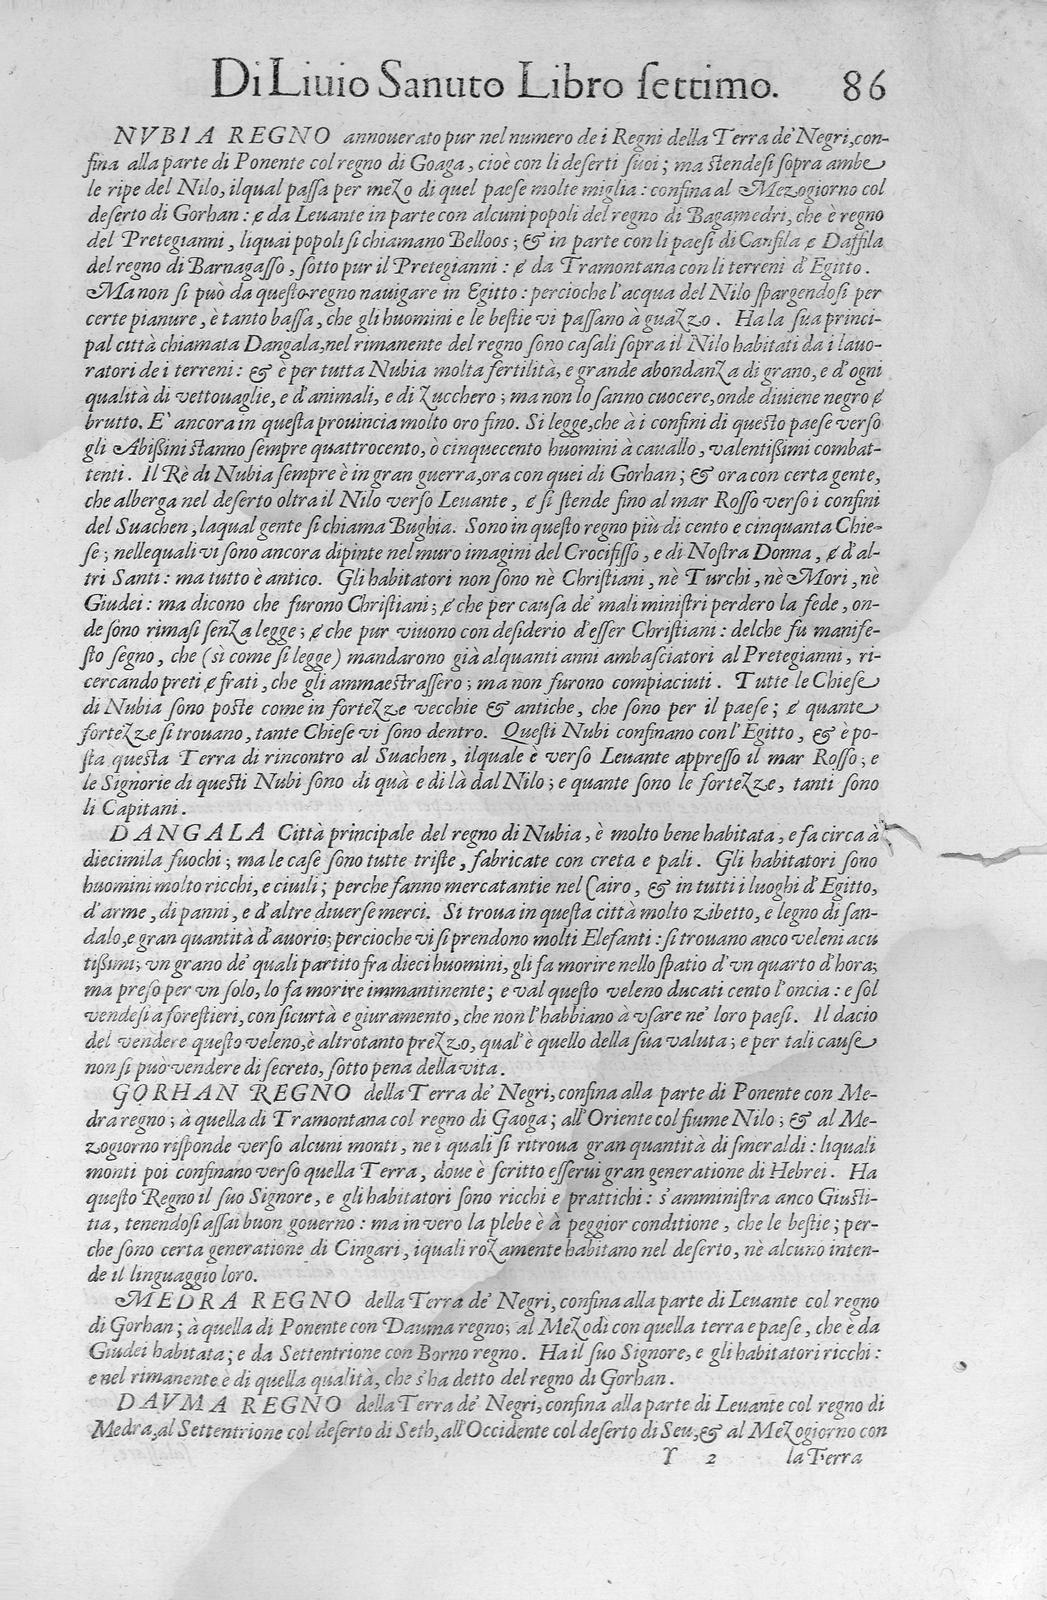 Di Liuio Sanuto Libro settimo. 86
NVBIA REGNO annouerato pur nel numero de i Regni della Terra de' Negri, con-
fina alla parte di Ponente col regno di Goaga, cioè con li deserti suoi; ma stendesi sopra ambe
le ripe del Nilo, ilqual passa per mezo di quel paese molte miglia: confina al Mezogiorno col
deserto di Gorhan: & da Leuante in parte con alcuni popoli del regno di Bagamedri, che è regno
del Pretegianni, liquai popoli si chiamano Belloos; & in parte con li paesi di Canfila e Daffila
del regno di Barnagasso, sotto pur il Pretegianni: & da Tramontana con li terreni d'Egitto.
Ma non si può da questo regno nauigare in Egitto: percioche l'acqua del Nilo spargendosi per
certe pianure, è tanto bassa, che gli huomini e le bestie vi passano à guazzo. Ha la sua princi-
pal città chiamata Dangala, nel rimanente del regno sono casali sopra il Nilo habitati da i lauo-
ratori de i terreni: & è per tutta Nubia molta fertilità, e grande abondanza di grano, e d'ogni
qualità di vettouaglie, e d'animali, e di zucchero; ma non lo sanno cuocere, onde diuiene negro &
brutto. E' ancora in questa prouincia molto oro fino. Si legge, che à i confini di questo paese verso
gli Abissini stanno sempre quattrocento, ò cinquecento huomini à cauallo, valentissimi combat-
tenti. Il Rè di Nubia sempre è in gran guerra, ora con quei di Gorhan; & ora con certa gente,
che alberga nel deserto oltra il Nilo verso Leuante, & si stende fino al mar Rosso verso i confini
del Suachen, laqual gente si chiama Bughia. Sono in questo regno più di cento e cinquanta Chie-
se; nellequali vi sono ancora dipinte nel muro imagini del Crocifisso, e di Nostra Donna, & d'al-
tri Santi: ma tutto è antico. Gli habitatori non sono nè Christiani, nè Turchi, nè Mori, nè
Giudei: ma dicono che furono Christiani; & che per causa de' mali ministri perdero la fede, on-
de sono rimasi senza legge; & che pur viuono con desiderio d'esser Christiani: delche fu manife-
sto segno, che (sì come si legge) mandarono già alquanti anni ambasciatori al Pretegianni, ri-
cercando preti & frati, che gli ammaestrassero; ma non furono compiaciuti. Tutte le Chiese
di Nubia sono poste come in fortezze vecchie & antiche, che sono per il paese; & quante
fortezze si trouano, tante Chiese vi sono dentro. Questi Nubi confinano con l'Egitto, & è po-
sta questa Terra di rincontro al Suachen, ilquale è verso Leuante appresso il mar Rosso; e
le Signorie di questi Nubi sono di quà e di là dal Nilo; e quante sono le fortezze, tanti sono
li Capitani.
DANGALA Città principale del regno di Nubia, è molto bene habitata, e fa circa à
diecimila fuochi; ma le case sono tutte triste, fabricate con creta e pali. Gli habitatori sono
huomini molto ricchi, e ciuili; perche fanno mercatantie nel Cairo, & in tutti i luoghi d'Egitto,
d'arme, di panni, e d'altre diuerse merci. Si troua in questa città molto zibetto, e legno di san-
dalo, e gran quantità d'auorio; percioche vi si prendono molti Elefanti: si trouano anco veleni acu
tissimi; vn grano de' quali partito fra dieci huomini, gli fa morire nello spatio d'vn quarto d'hora;
ma preso per vn solo, lo fa morire immantinente; e val questo veleno ducati cento l'oncia: e sol
vendesi à forestieri, con sicurtà e giuramento, che non l'habbiano à vsare ne' loro paesi. Il dacio
del vendere questo veleno, è altrotanto prezzo, qual'è quello della sua valuta; e per tali cause
non si può vendere di secreto, sotto pena della vita.
GORHAN REGNO della Terra de' Negri, confina alla parte di Ponente con Me-
dra regno; à quella di Tramontana col regno di Gaoga; all'Oriente col fiume Nilo; & al Me-
zogiorno risponde verso alcuni monti, ne i quali si ritroua gran quantità di smeraldi: liquali
monti poi confinano verso quella Terra, doue è scritto esserui gran generatione di Hebrei. Ha
questo Regno il suo Signore, e gli habitatori sono ricchi e prattichi: s'amministra anco Giusti-
tia, tenendosi assai buon gouerno: ma in vero la plebe è à peggior conditione, che le bestie; per-
che sono certa generatione di Cingari, iquali rozamente habitano nel deserto, nè alcuno inten-
de il linguaggio loro.
MEDRA REGNO della Terra de' Negri, confina alla parte di Leuante col regno
di Gorhan; à quella di Ponente con Dauma regno; al Mezodì con quella terra e paese, che è da
Giudei habitata; e da Settentrione con Borno regno. Ha il suo Signore, e gli habitatori ricchi:
e nel rimanente è di quella qualità, che s'ha detto del regno di Gorhan.
DAVMA REGNO della Terra de' Negri, confina alla parte di Leuante col regno di
Medra, al Settentrione col deserto di Seth, all'Occidente col deserto di Seu, & al Mezogiorno con
Y 2 la Terra